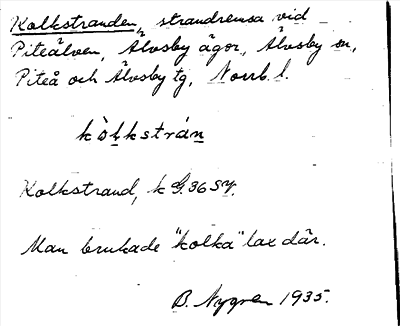 Kolkstranden, strandremsa vid
Piteälven, Älvsby ägor, Älvsby sn,
Piteå och Älvsby tg, Norrb. l.
kòlkstrán
Kolkstrand, k G. 36 SY.
Man brukade "kolka" lax där.
B. Nygren 1935.